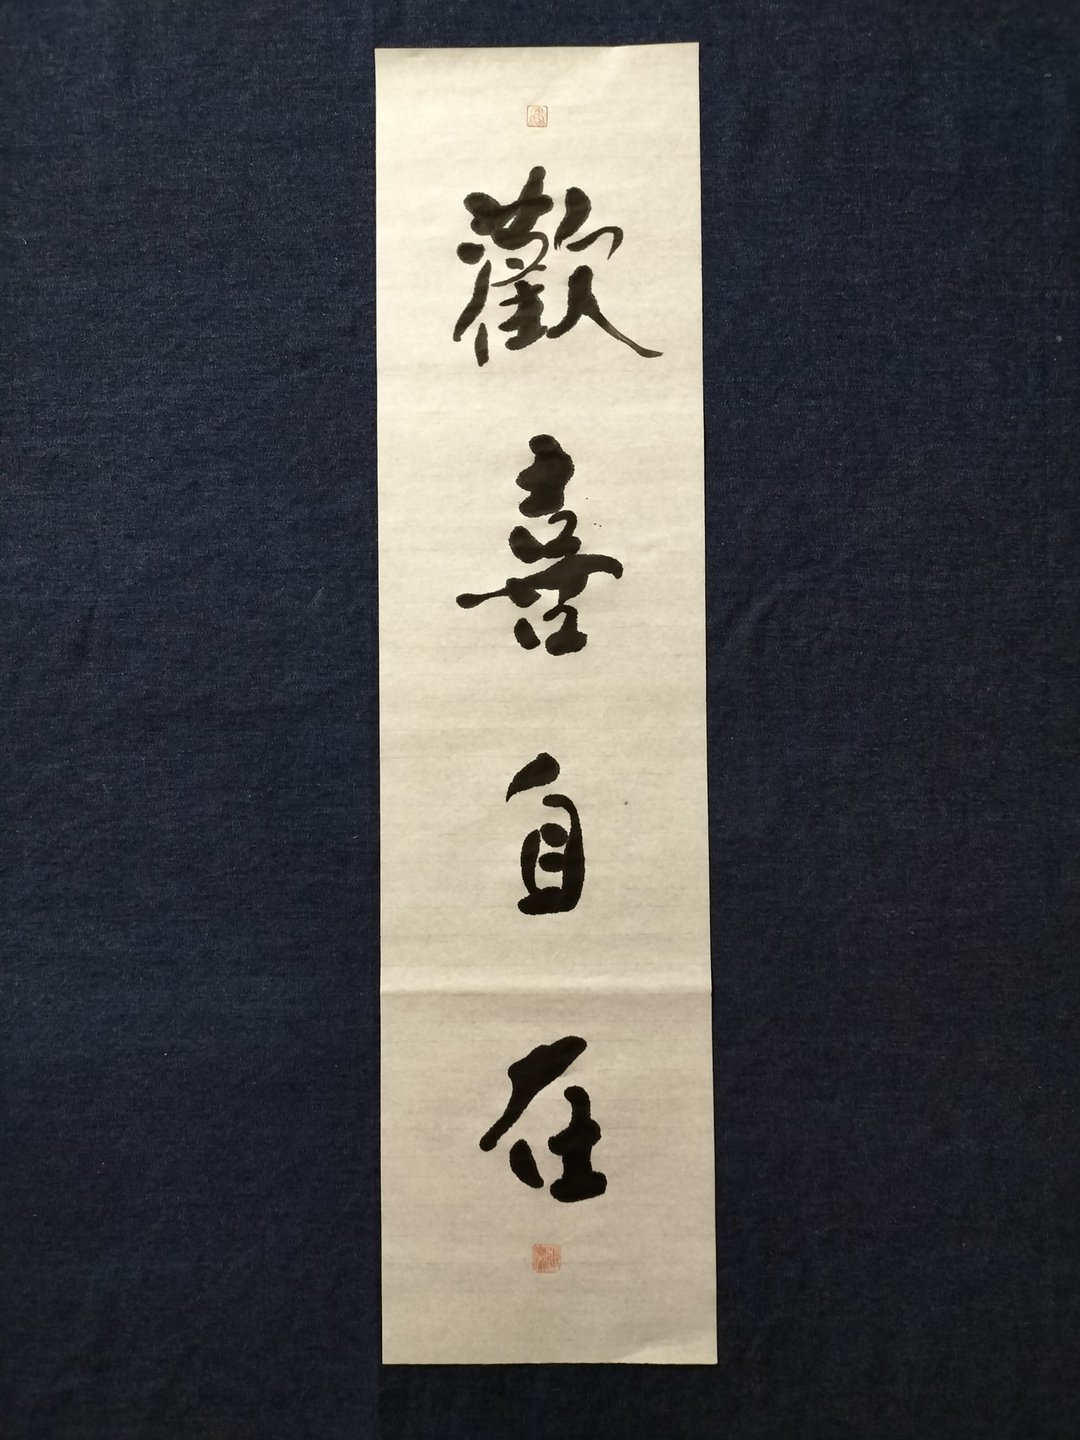 歡喜自在